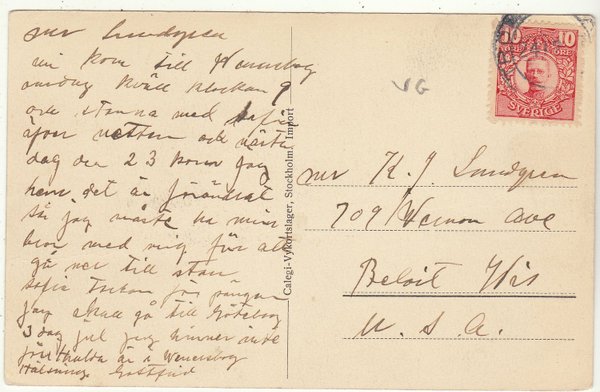 mr Lundgren
vi kom till Wenersbog
onsdag kväll klockan 9
och stanna med Sofia
åfver natten och näste
dag den 23 kom jag
hem det är förändrat
så jag måste ha min
bror med mig för att
gå ner till stan
Sofia
jag skall gå till Göteborg
3 dag jul jag hinner inte
förr Hulda är i Wenersbog
Hälsning Gottfrid
Calegi-Vykortslager, Stockholm. Import
VG
10 10
ÖRE ÖRE
SVERIGE
mr K. J. Lundgren
709 Vernon Ave
Beloit Wis
U. S. A.